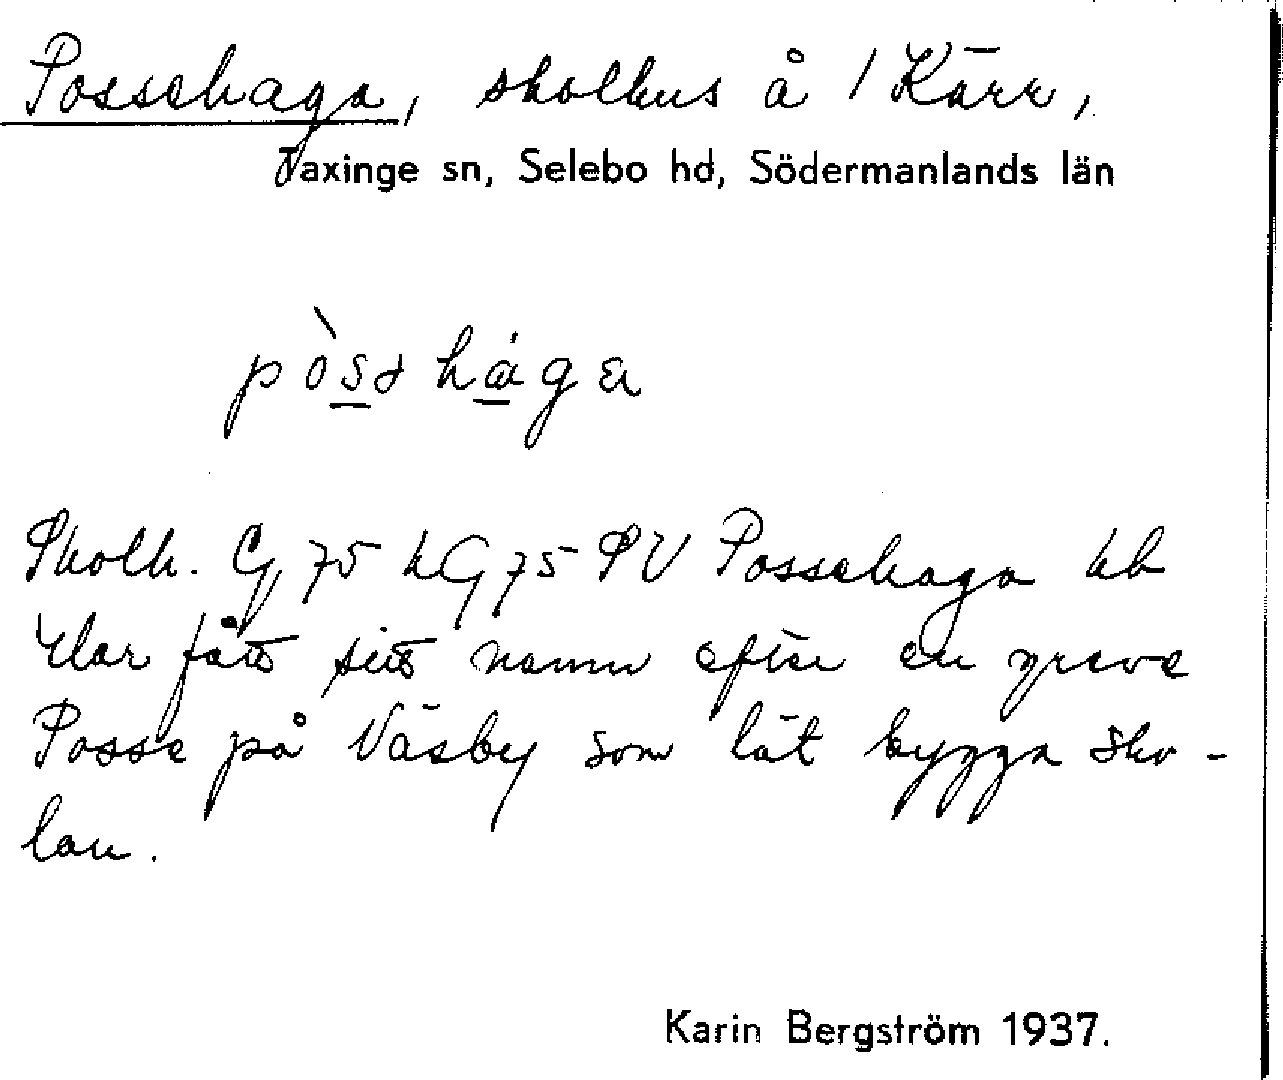 Possehaga, skolhus å 1 Kärr,
Taxinge sn, Selebo hd, Södermanlands län
pòsə hága
Skolh. G 75 hG 75 PV Possehaga hb
Har fått sitt namn efter en greve
Posse på Väsby som lät bygga sko-
lan.
Karin Bergström 1937.